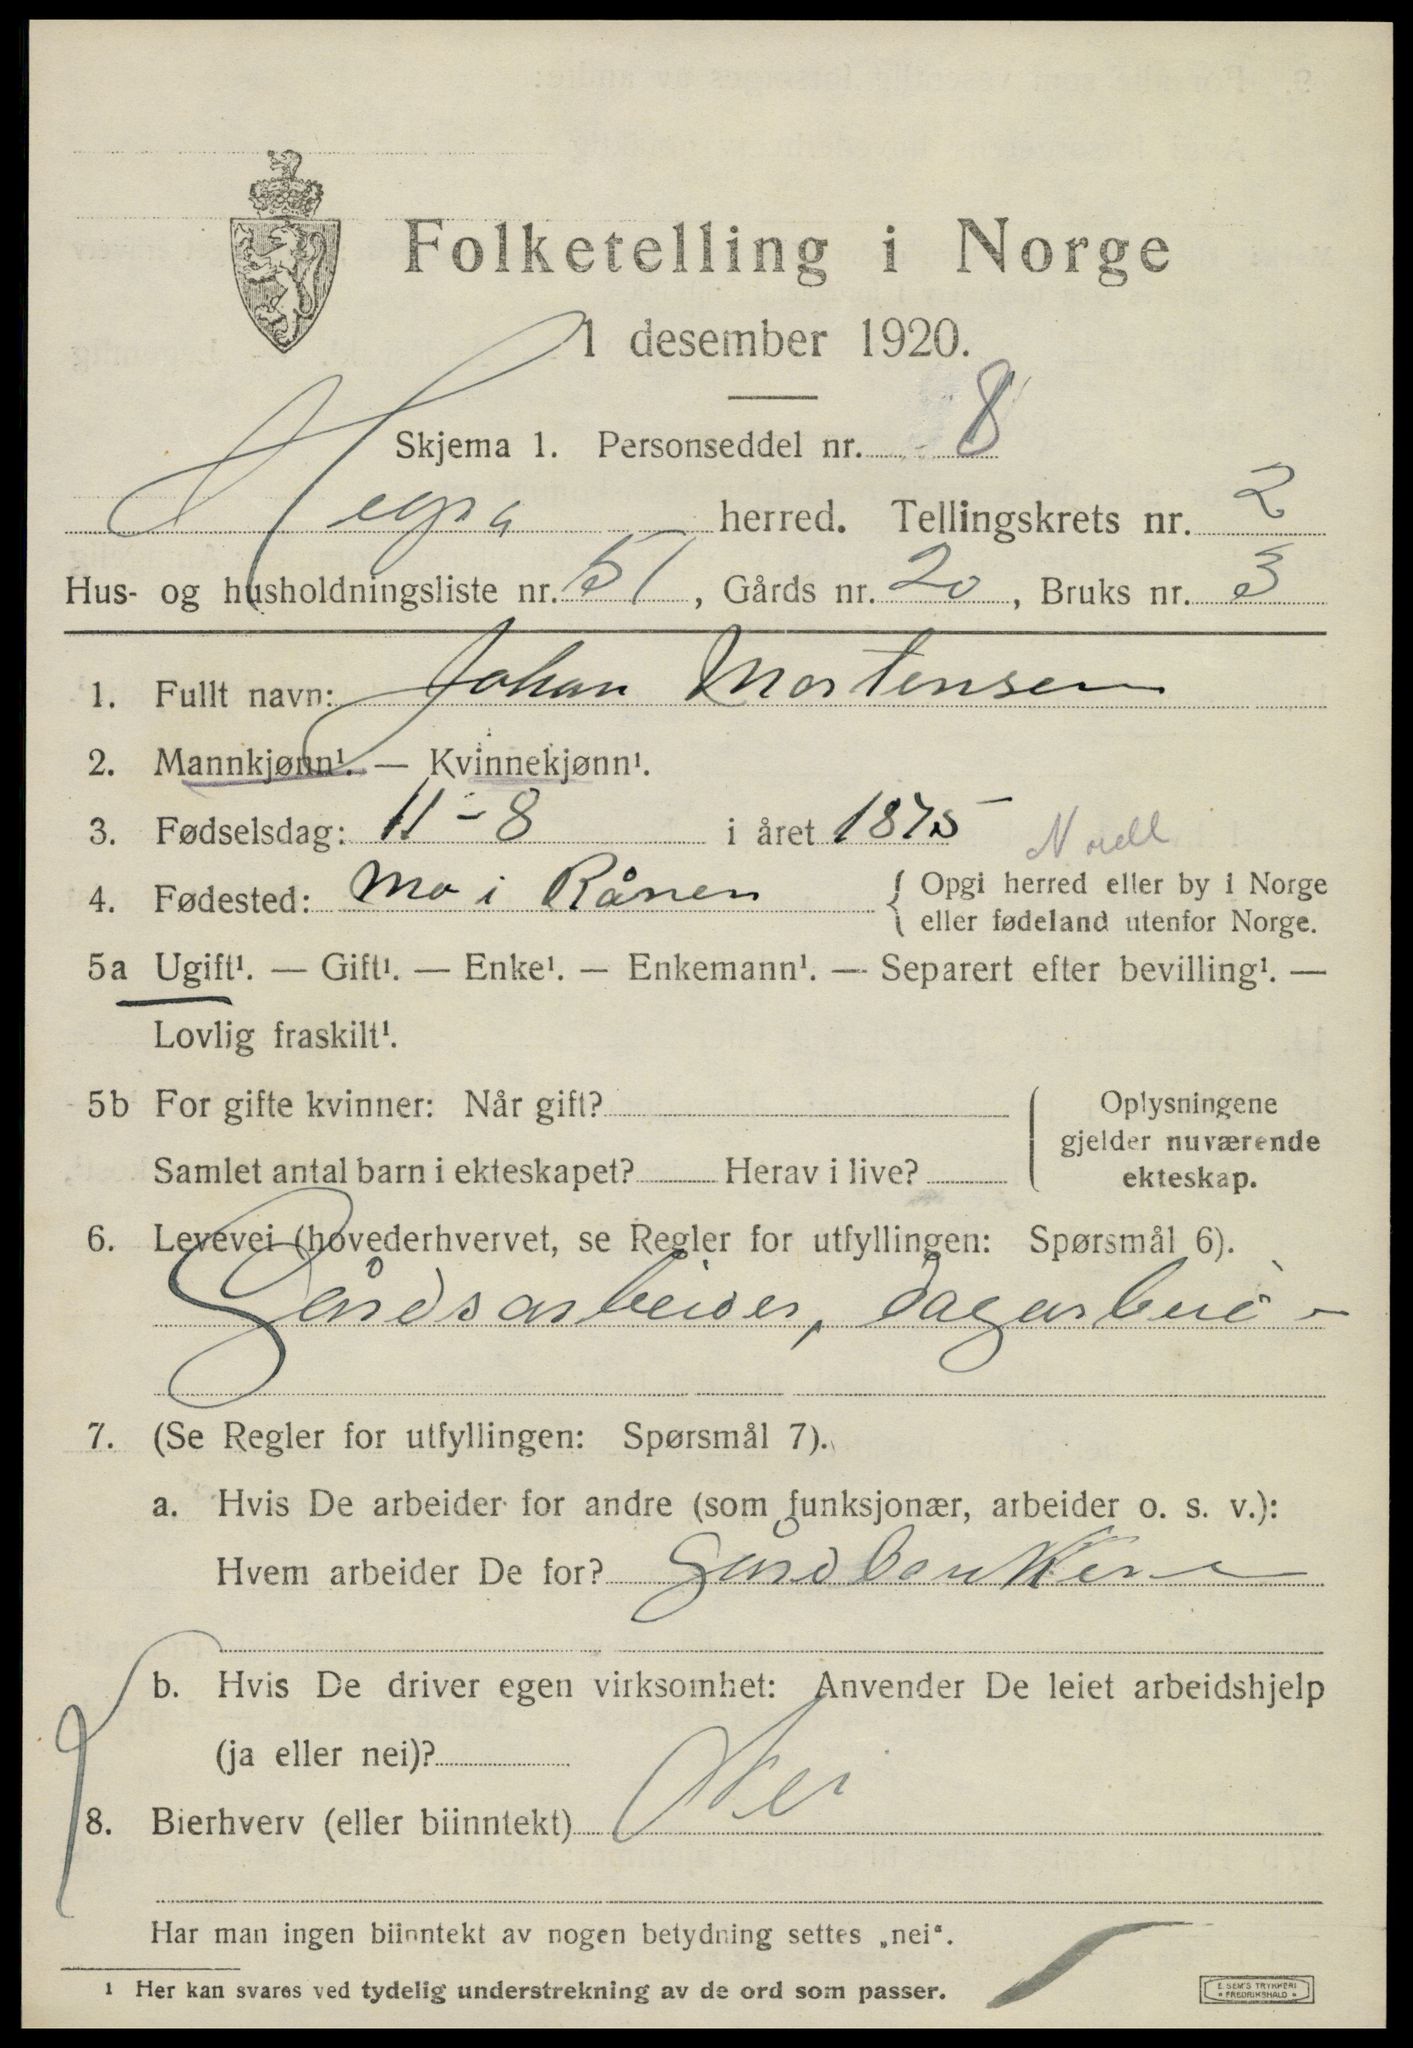 Folketelling i Norge
1 desember 1920.
Skjema 1. Personseddel nr. 8
Hegra herred. Tellingskrets nr. 2
Hus- og husholdningsliste nr. 51, Gårds nr. 20, Bruks nr. 3
1. Fullt navn: Johan Mortensen
2. Mannkjønn¹. — Kvinnekjønn¹.
3. Fødselsdag: 11-8 i året 1875
Nordl
4. Fødested: Mo i Rånen { Opgi herred eller by i Norge
eller fødeland utenfor Norge.
5a Ugift¹. — Gift¹. — Enke¹. — Enkemann¹. — Separert efter bevilling¹. —
Lovlig fraskilt¹.
5b For gifte kvinner: Når gift?
Samlet antal barn i ekteskapet? Herav i live?
Oplysningene
gjelder nuværende
ekteskap.
6. Levevei (hovederhvervet, se Regler for utfyllingen: Spørsmål 6).
Gårdsarbeider, dagarbeid-
7. (Se Regler for utfyllingen: Spørsmål 7).
a. Hvis De arbeider for andre (som funksjonær, arbeider o. s. v.):
Hvem arbeider De for? Gårdbrukere
b. Hvis De driver egen virksomhet: Anvender De leiet arbeidshjelp
(ja eller nei)?
8. Bierhverv (eller biinntekt) Nei
Har man ingen biinntekt av nogen betydning settes „nei“.
1 Her kan svares ved tydelig understrekning av de ord som passer.
E. SEM'S TRYKKERI
FREDRIKSHALD